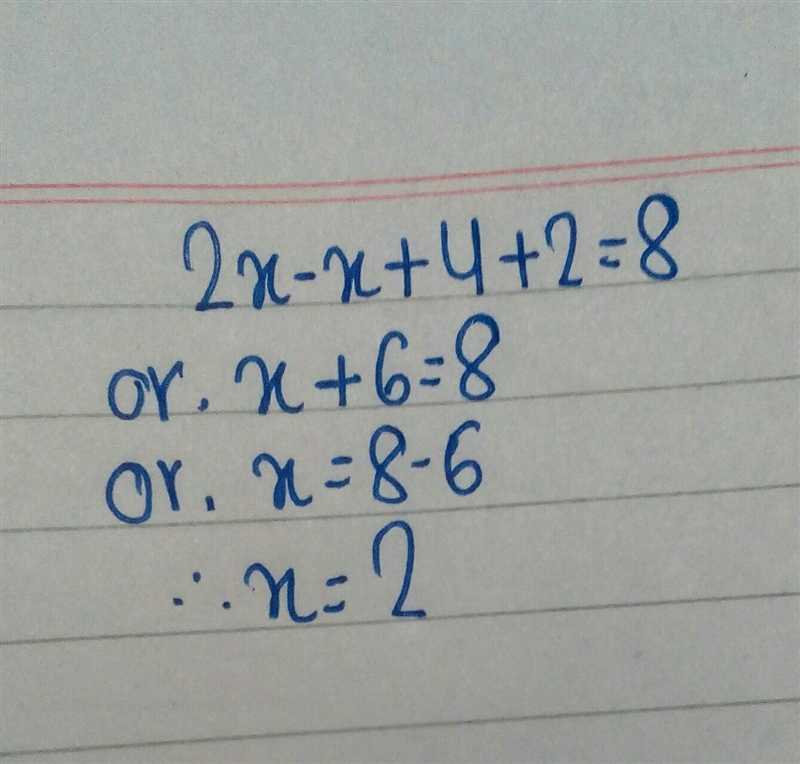 2x-x+4+2=8
or. x+6=8
or. x=8-6
∴ x=2